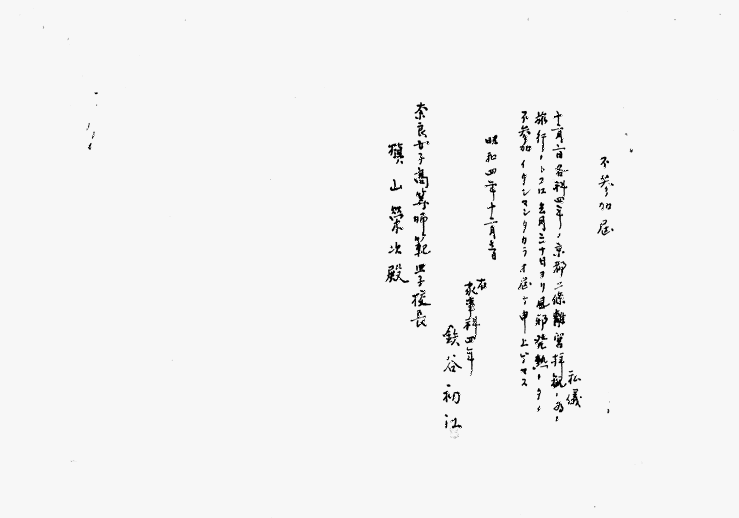 不參加届
私儀
十二月六日各科四年ノ京都二條離宮拝観ノ為ノ
旅行ノトコロ去月三十日ヨリ風邪發熱ノタメ
不參加イタシマシタカラオ届ケ申上ゲマス
昭和四年十二月 日
右
家事科四年
谷初江
奈良女子高等師範学校長
槇山榮次殿